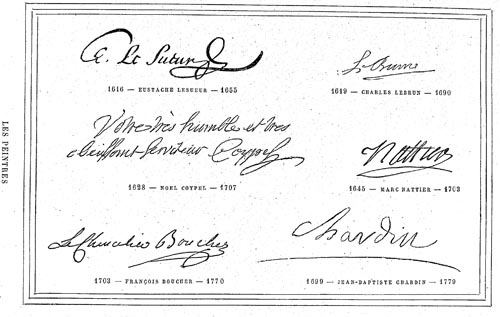 LES PEINTRES
E. Le Sueur
1616 — EUSTACHE LESUEUR — 1655
Le Brun
1619 — CHARLES LEBRUN — 1690
Votre très humble et tres
obeissant Serviteur Coypel
1628 — NOEL COYPEL — 1707
Nattier
1645 — MARC NATTIER — 1703
Le Chevalier Boucher
1703 — FRANÇOIS BOUCHER — 1770
Chardin
1699 — JEAN-BAPTISTE CHARDIN — 1779